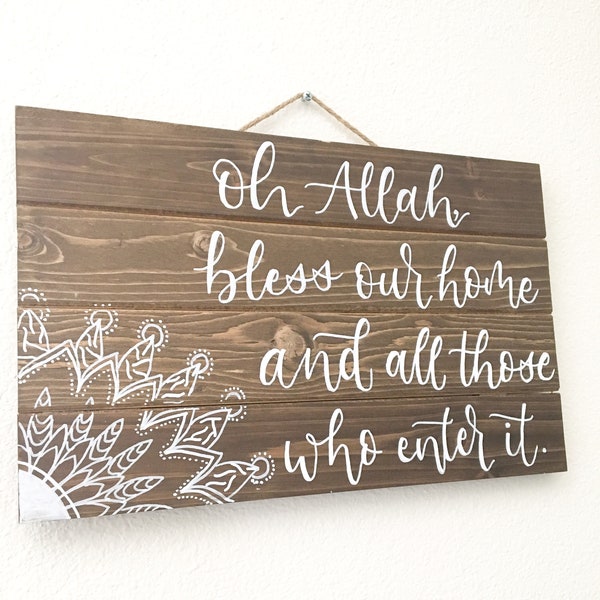 oh Allah,
bless our home
and all those
who enter it.